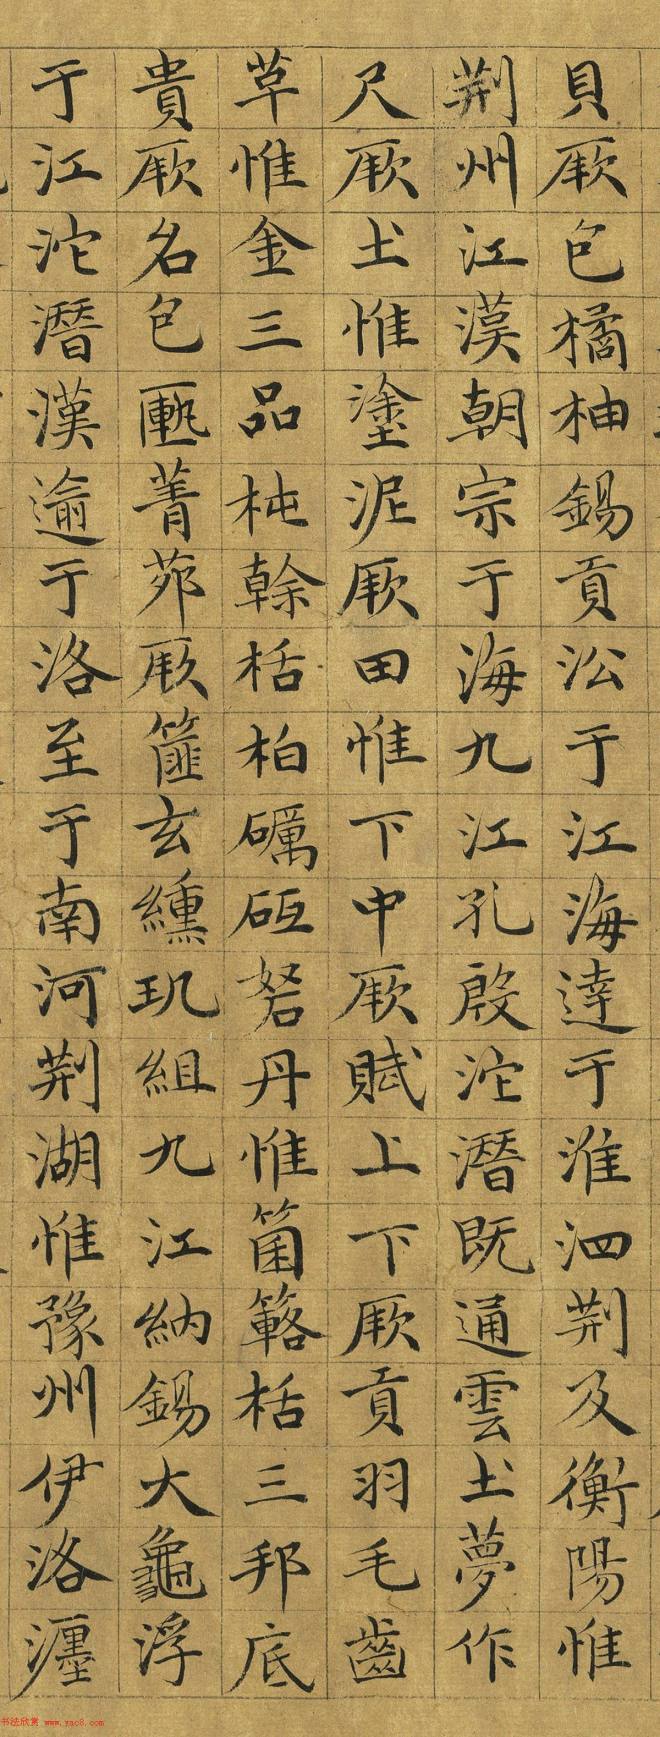 貝厥包橘柚錫貢㳂于江海達于淮泗荆及衡陽惟
荆州江漢朝宗于海九江孔殷沱潛既通雲土夢作
尺厥土惟塗泥厥田惟下中厥賦上下厥貢羽毛齒
草惟金三品杶榦栝柏礪砥砮丹惟箘簵栝三邦底
貴厥名包匭菁茆厥篚玄纁玑組九江納錫大龜浮
于江沱潛漢逾于洛至于南河荆湖惟豫州伊洛瀍
书法欣赏 www.yac8.com